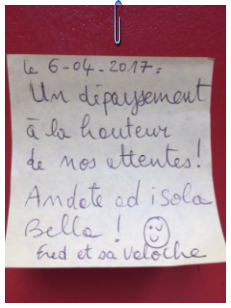 le 6-04-2017:
Un dépaysement
à la hauteur
de nos attentes!
Andate ad isola
Bella!
Fred et sa valoche